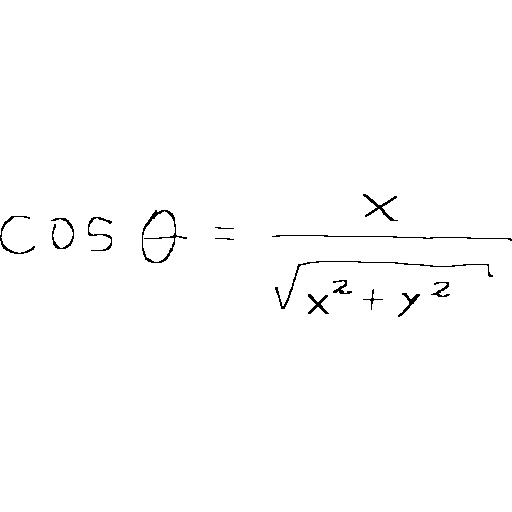 cos θ = x / √(x² + y²)